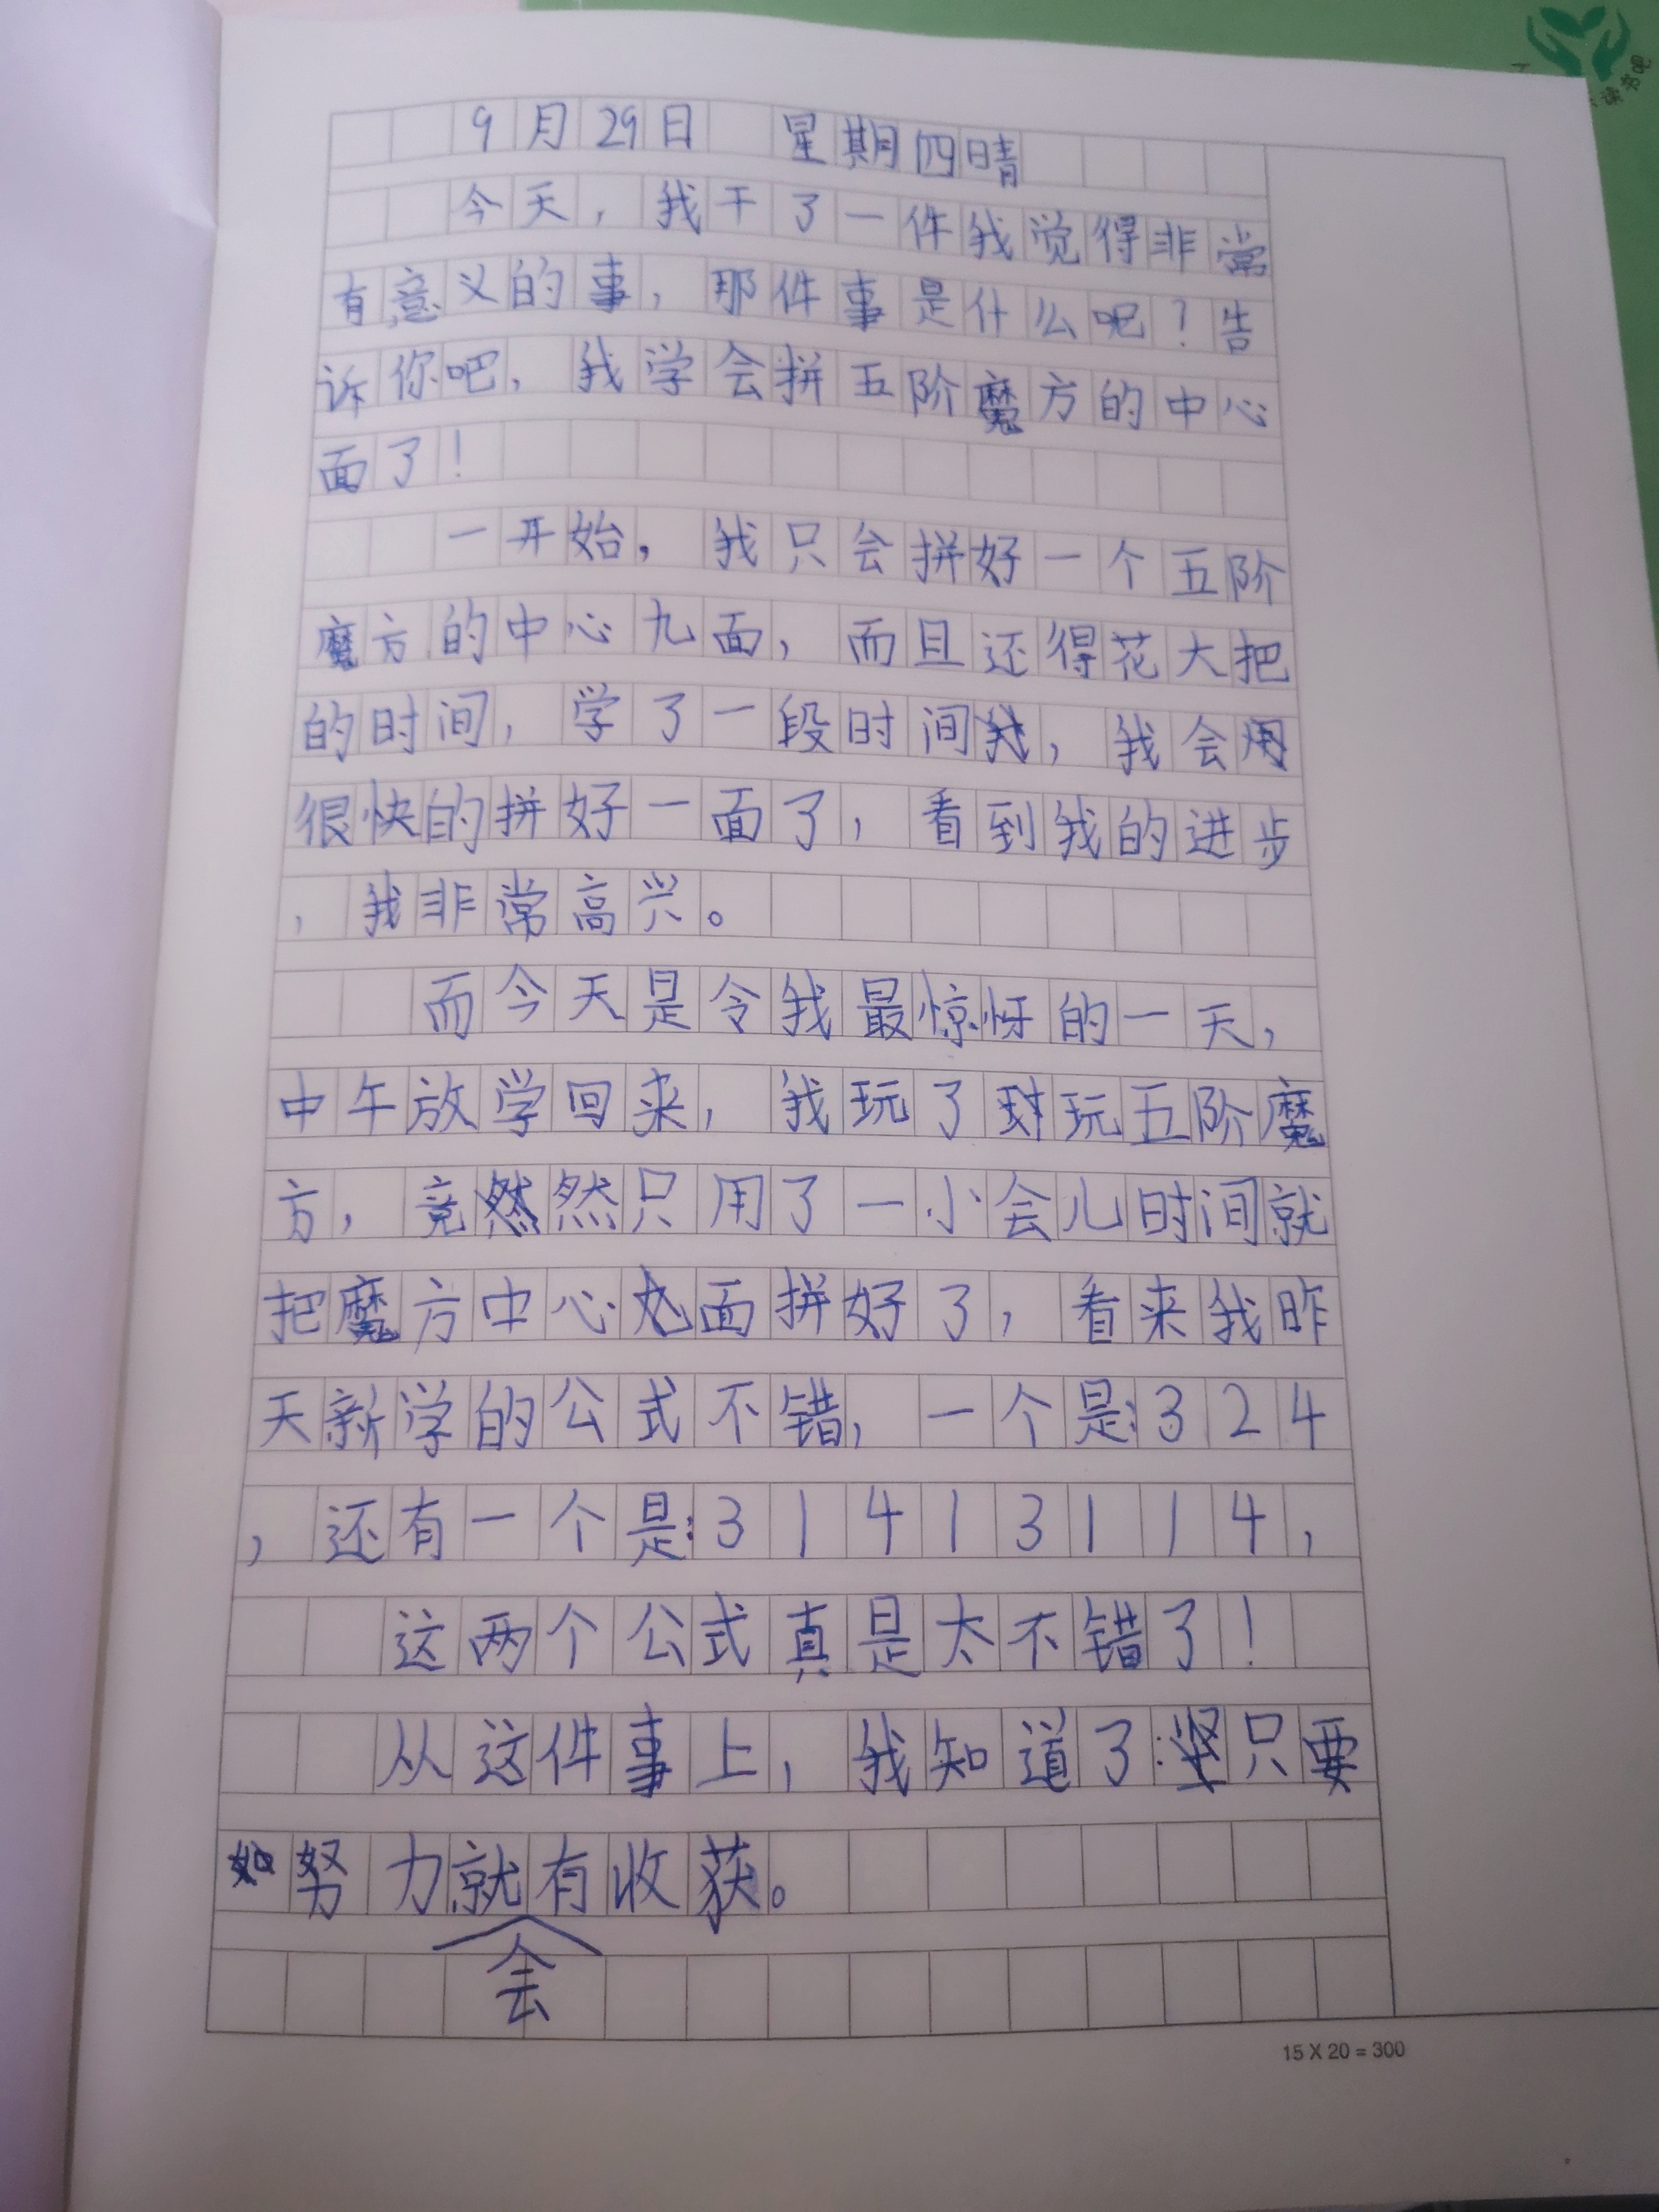 9月29日 星期四晴
今天，我干了一件我觉得非常
有意义的事，那件事是什么呢？告
诉你吧，我学会拼五阶魔方的中心
面了！
一开始，我只会拼好一个五阶
魔方的中心九面，而且还得花大把
的时间，学了一段时间，我会
很快的拼好一面了，看到我的进步
，我非常高兴。
而今天是令我最惊讶的一天，
中午放学回来，我玩了玩五阶魔
方，竟然只用了一小会儿时间就
把魔方中心九面拼好了，看来我昨
天新学的公式不错，一个是：324
，还有一个是：31413114，
这两个公式真是太不错了！
从这件事上，我知道了：只要
努力就会有收获。
15 X 20 = 300